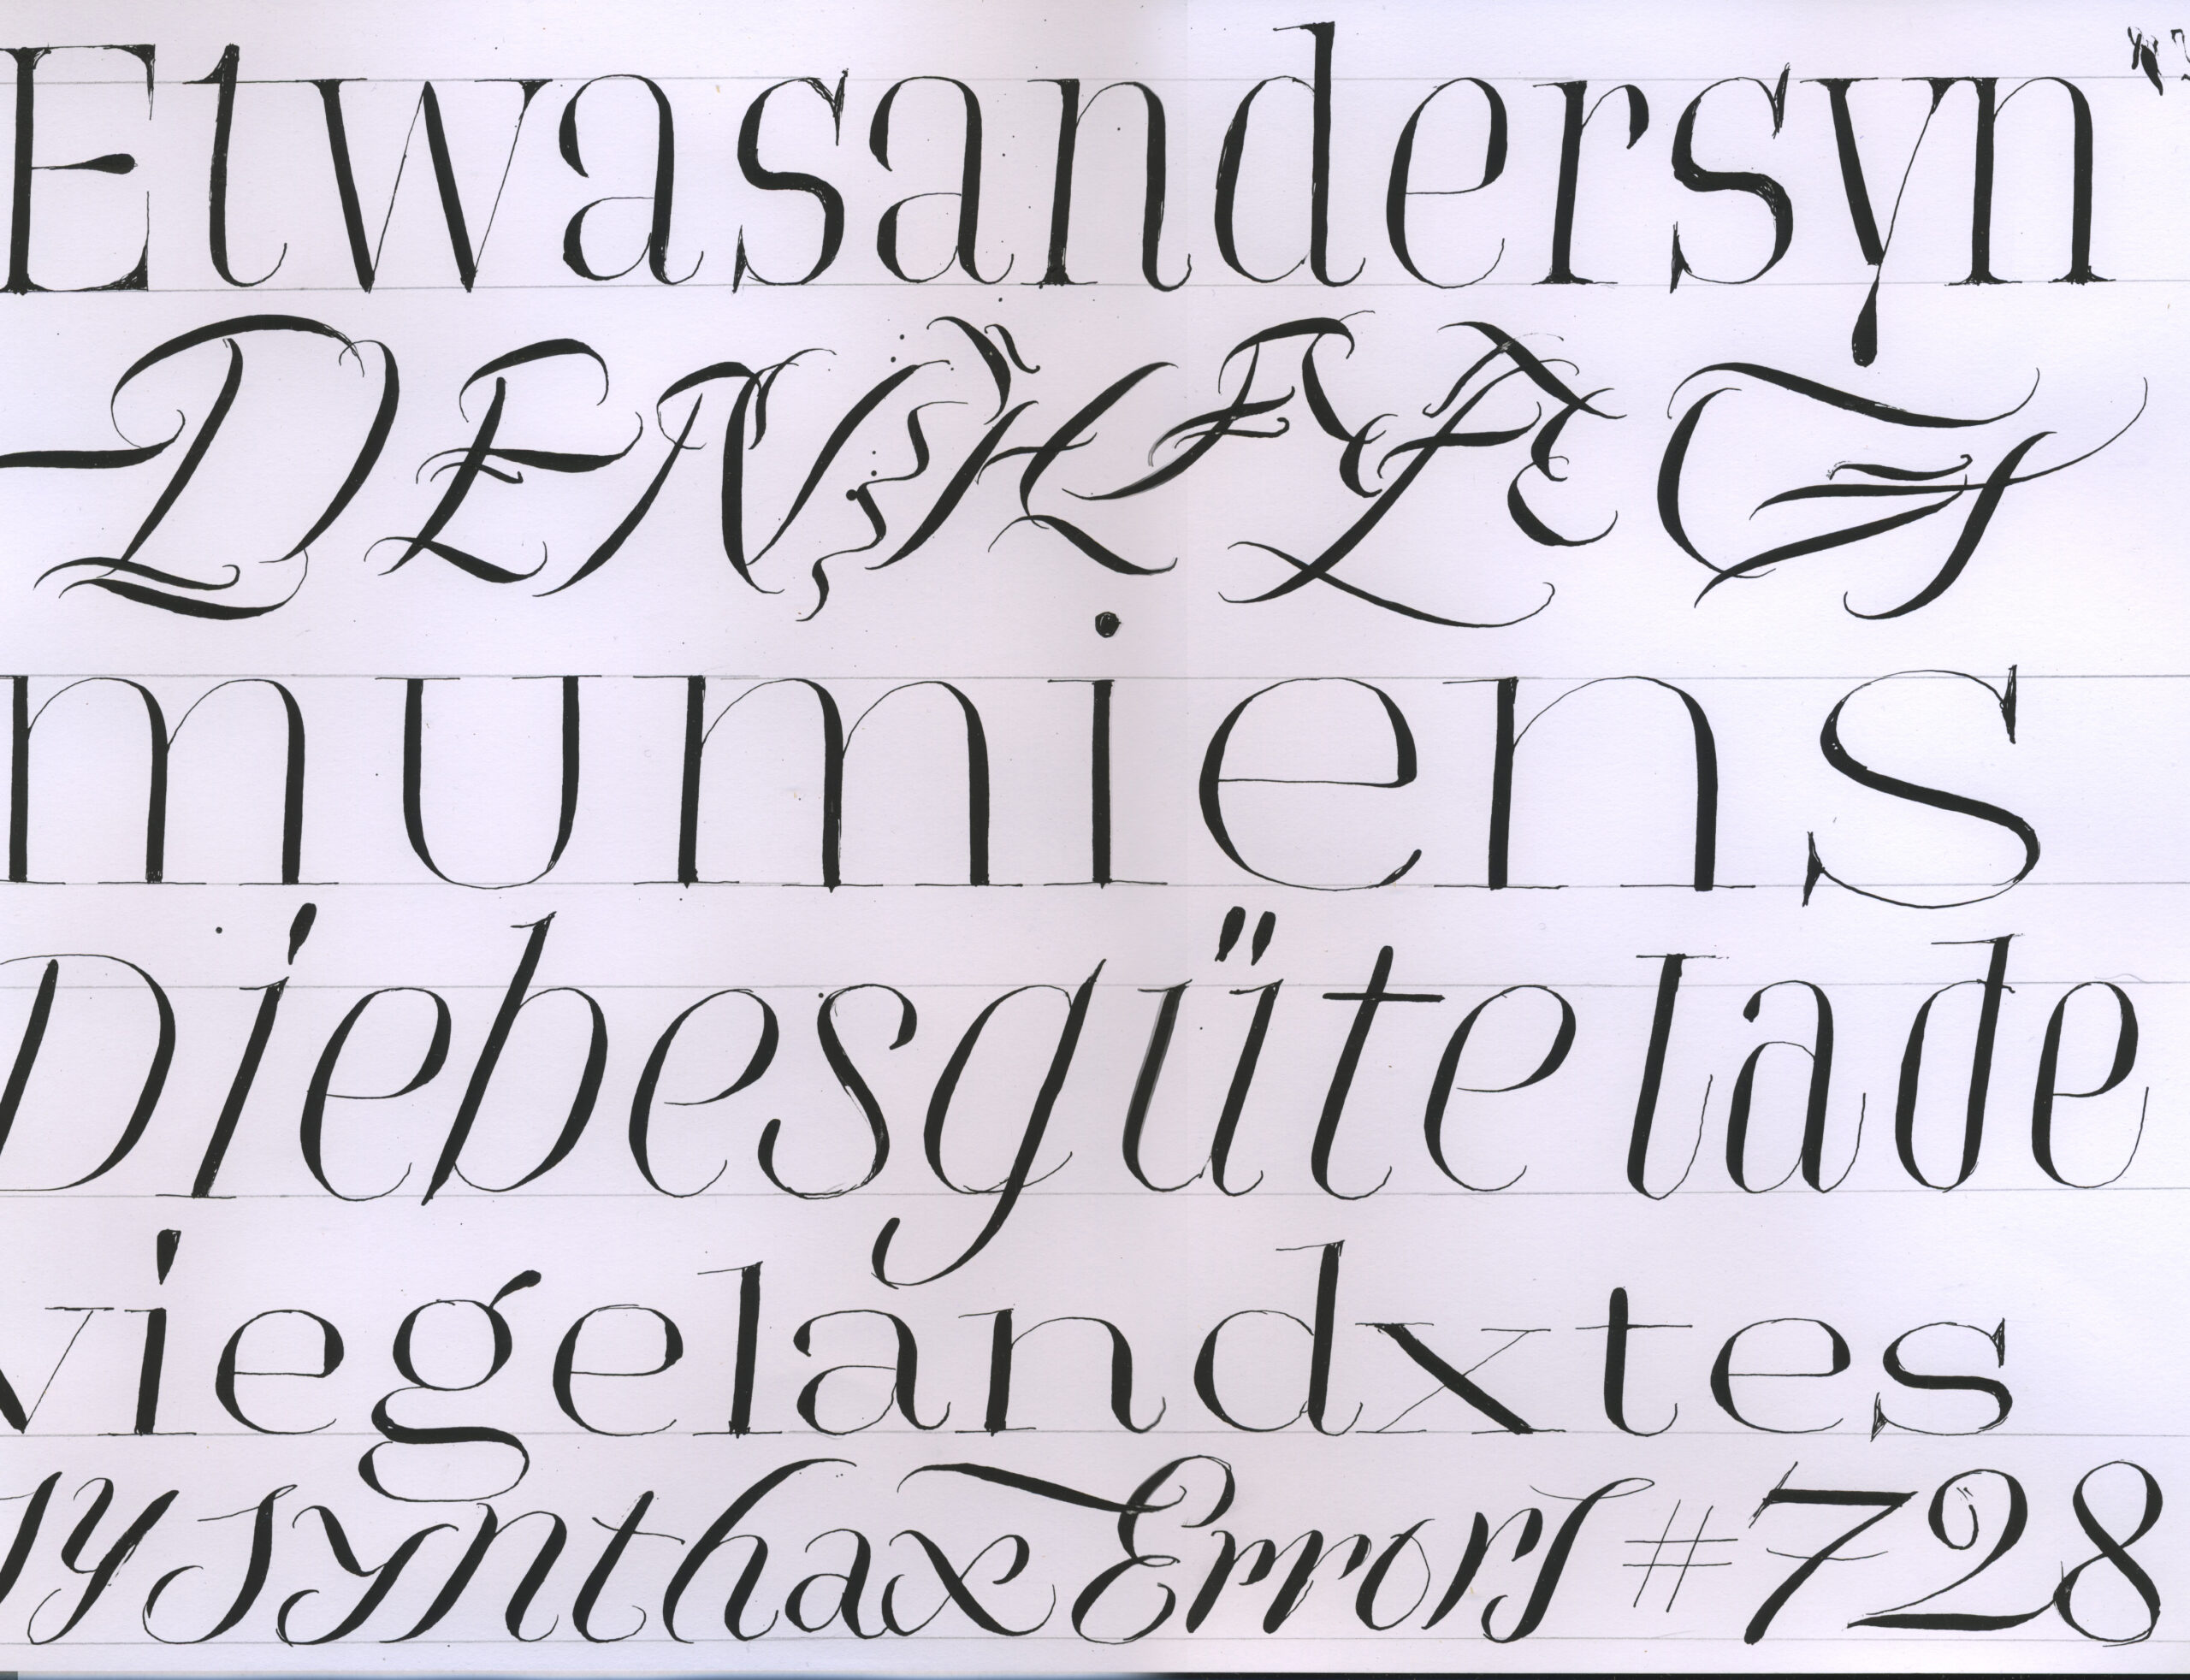 Etwasandersyn
mumiens
Diebesgüte lade
viegelandxtes
synthax Errors #728